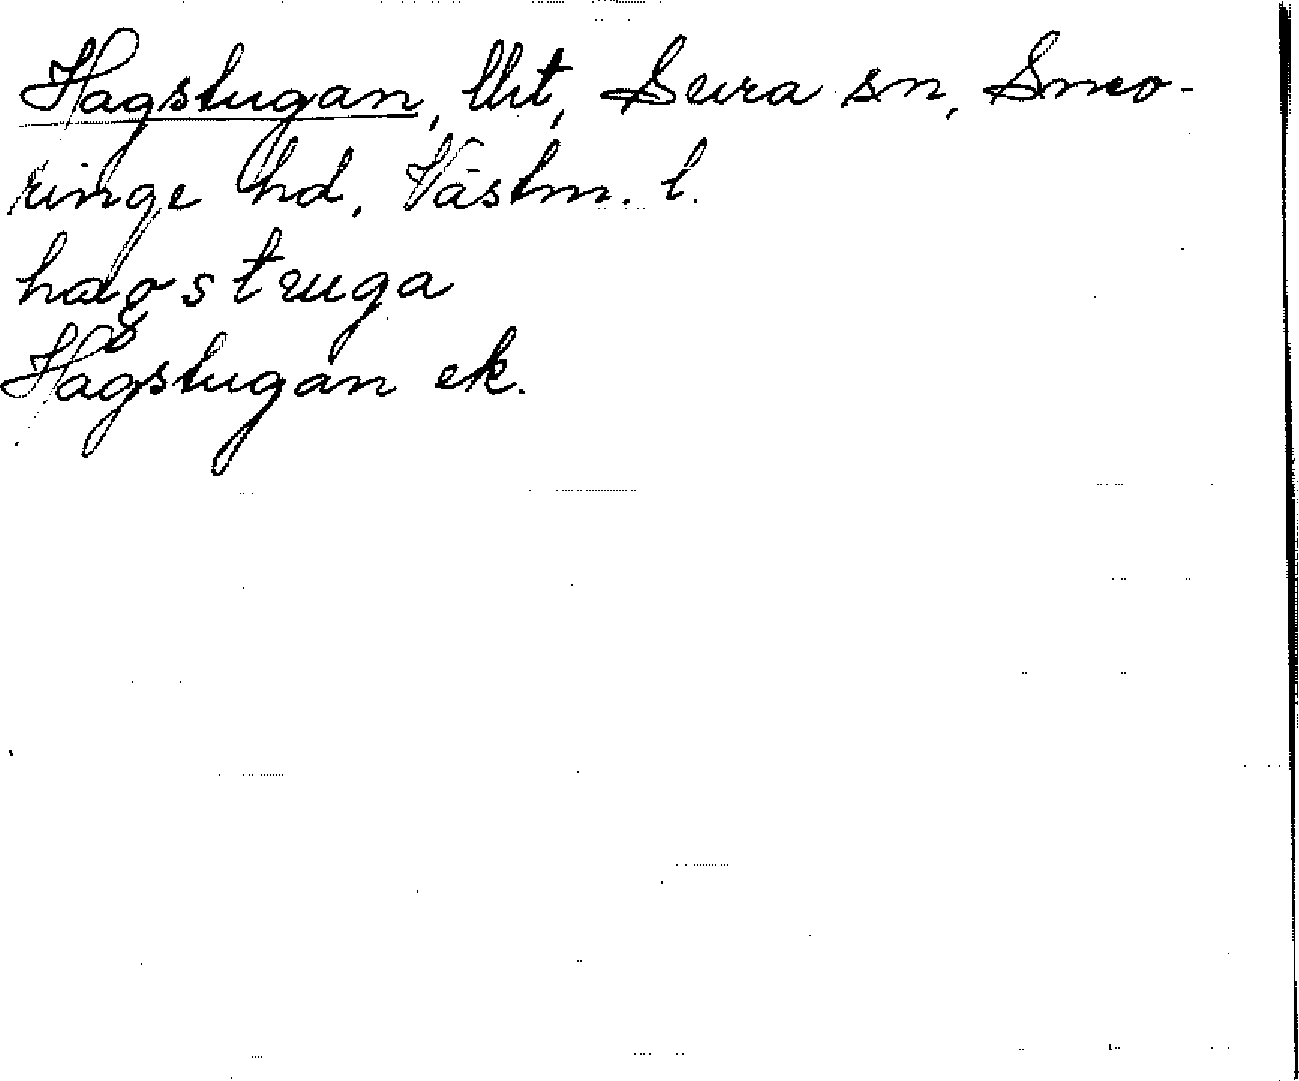 Hagstugan, lht, Sura sn, Snev-
ringe hd, Västm. l.
Hagstugan ek.